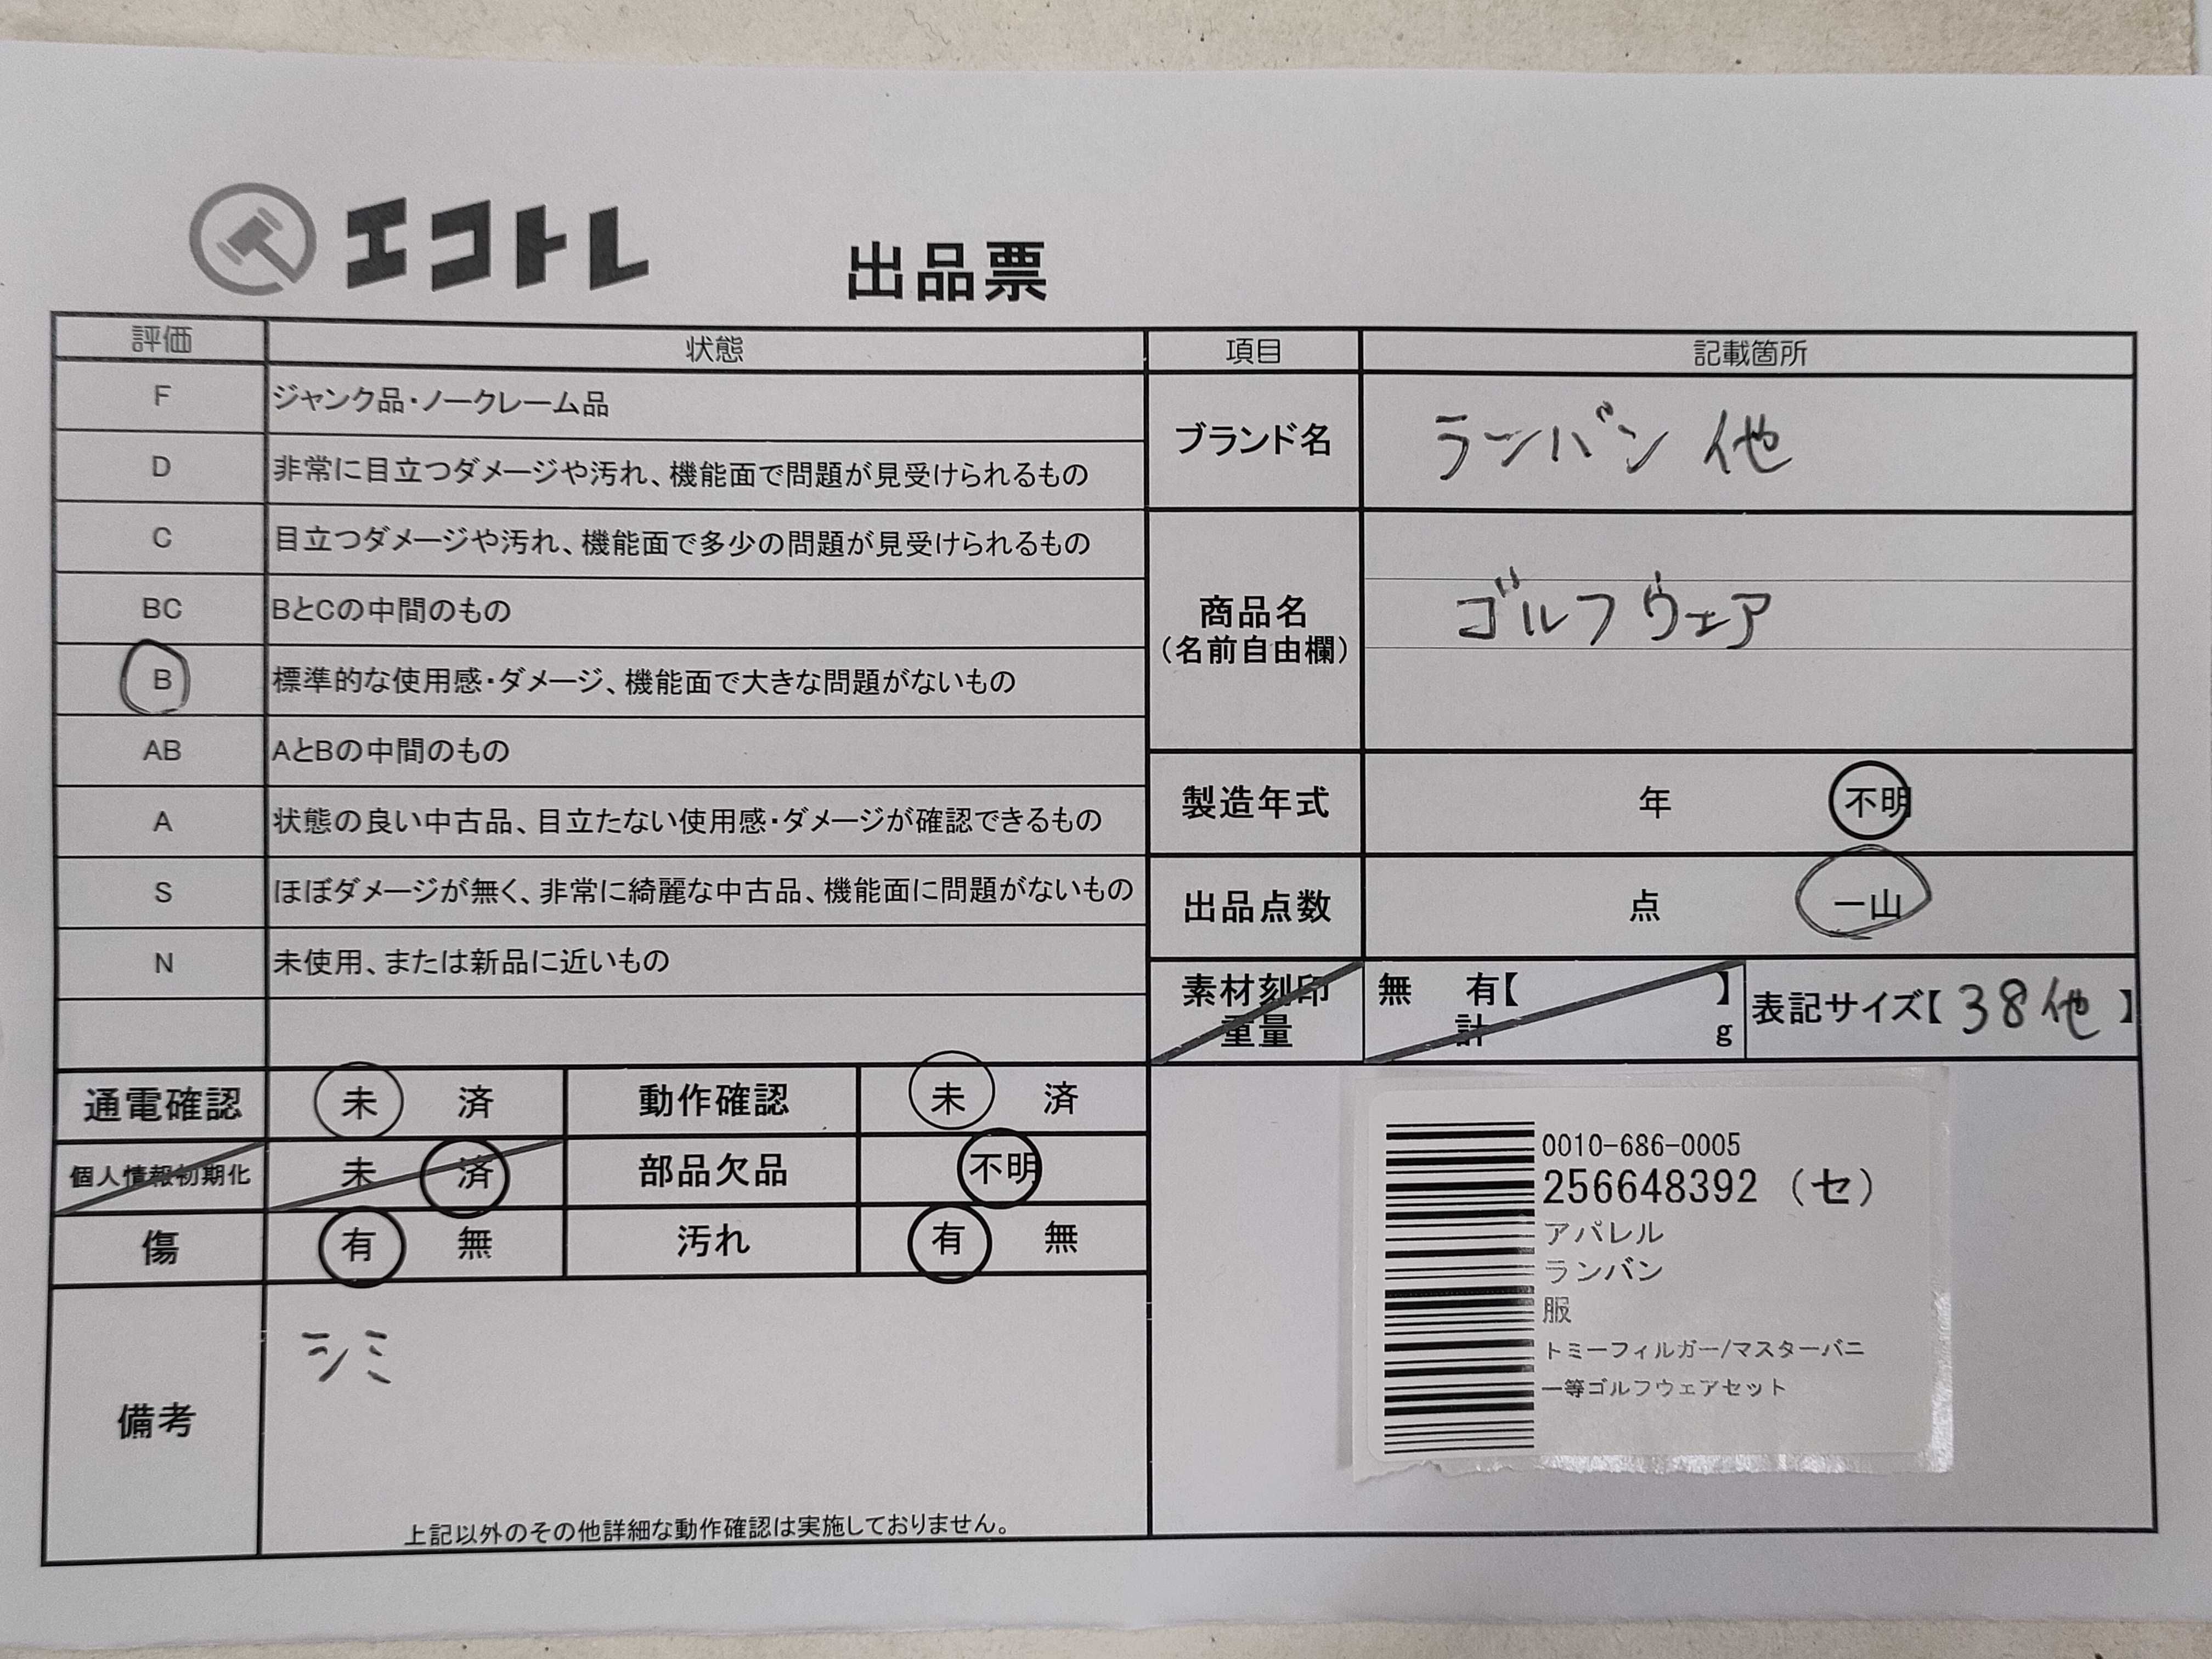 エコトレ 出品票
評価 状態 項目 記載箇所
F ジャンク品・ノークレーム品
D 非常に目立つダメージや汚れ、機能面で問題が見受けられるもの
ブランド名 ランバン 他
C 目立つダメージや汚れ、機能面で多少の問題が見受けられるもの
BC BとCの中間のもの
商品名
(名前自由欄)
ゴルフウェア
B 標準的な使用感・ダメージ、機能面で大きな問題がないもの
AB AとBの中間のもの
製造年式 年 不明
A 状態の良い中古品、目立たない使用感・ダメージが確認できるもの
S ほぼダメージが無く、非常に綺麗な中古品、機能面に問題がないもの
出品点数 点 一山
N 未使用、または新品に近いもの
素材刻印 無 有【 】
重量 計 g
表記サイズ【 38他 】
通電確認 未 済 動作確認 未 済
個人情報初期化 未 済 部品欠品 不明
傷 有 無 汚れ 有 無
備考
シミ
上記以外のその他詳細な動作確認は実施しておりません。
0010-686-0005
256648392 (セ)
アパレル
ランバン
服
トミーフィルガー/マスターバニ
ー等ゴルフウェアセット